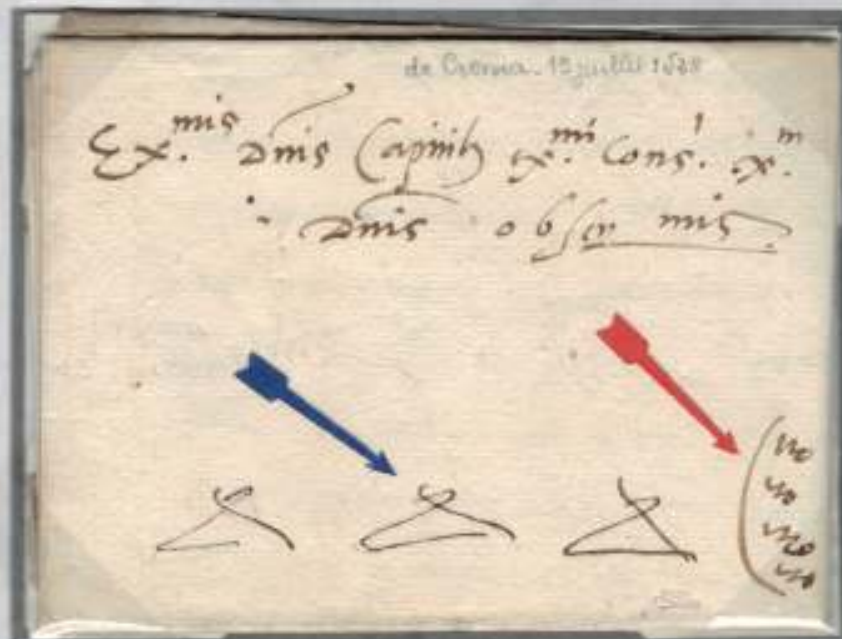 de Crema - 15 juillet 1538
Ex.mis Dnis Capitib ex.mi Cons.i .x.m
Dnis obser mis
no
no
no
no